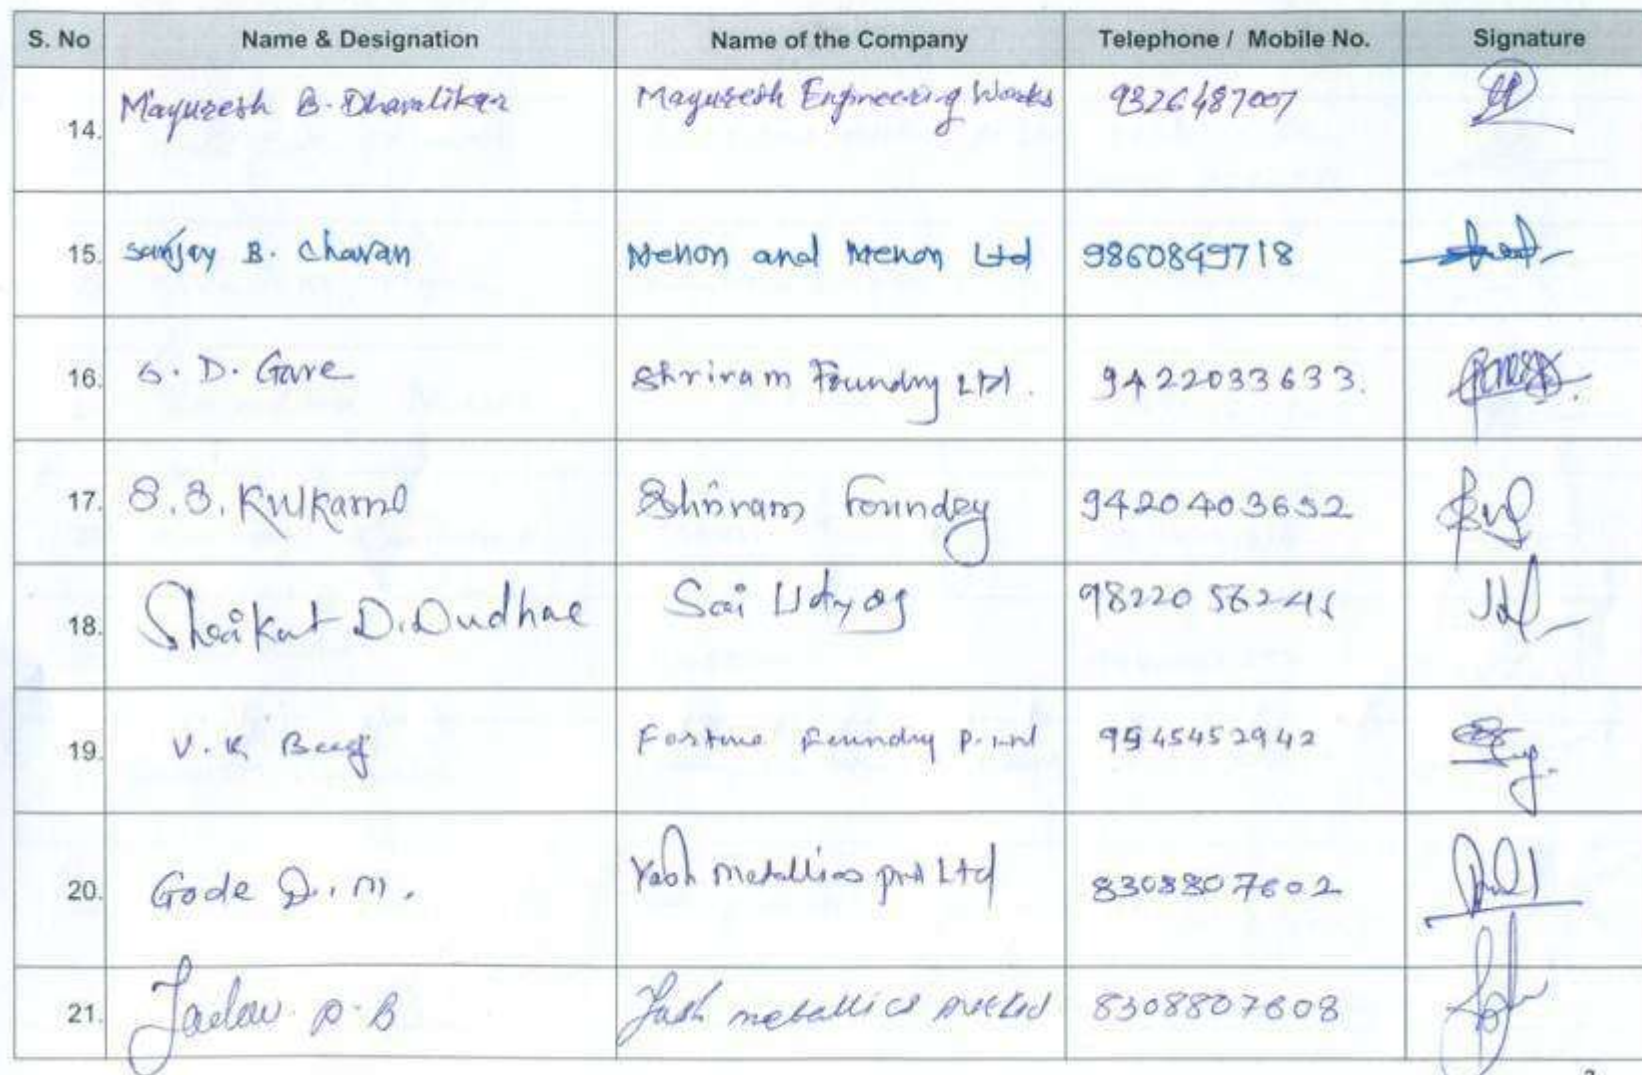 S. No Name & Designation Name of the Company Telephone / Mobile No. Signature
14. Mayuresh B. Dhavalikar Mayuresh Engineering Works 9326487007
15. Sanjay B. Chavan Menon and Menon Ltd 9860849718
16. S. D. Gave Shriram Foundry Ltd. 9422033633.
17. S. S. Kulkarni Shriram Foundry 9420403652
18. D. Dudhae Sai Udyog
19. V. K Foundry
20. Gode D. M. Yash Metallics pvt Ltd 8308807602
21. Jadav P. B Yash metallics pvt Ltd 8308807608